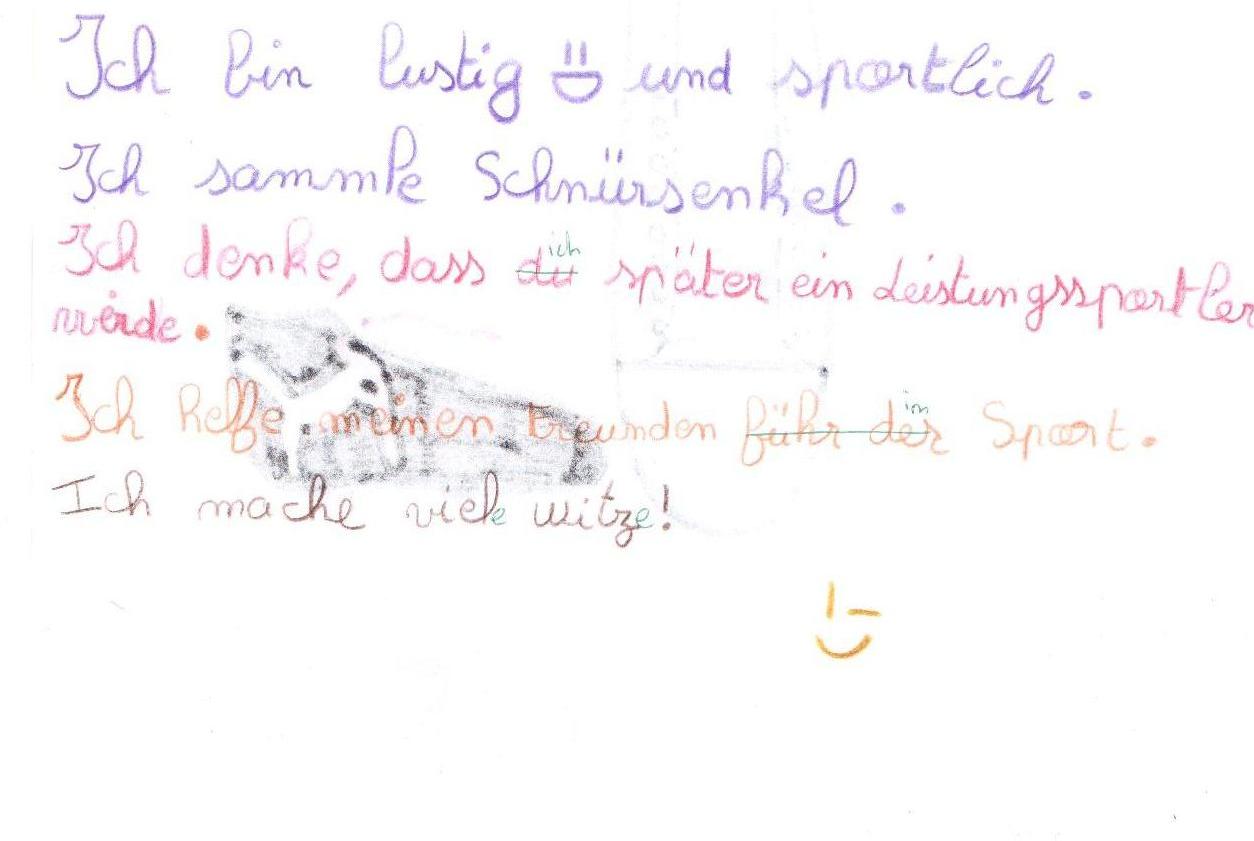 Ich bin lustig und sportlich.
Ich sammle Schnürsenkel.
Ich denke, dass du ich später ein Leistungssportler
werde.
Ich helfe meinen Freunden führ der im Sport.
Ich mache viele witze!